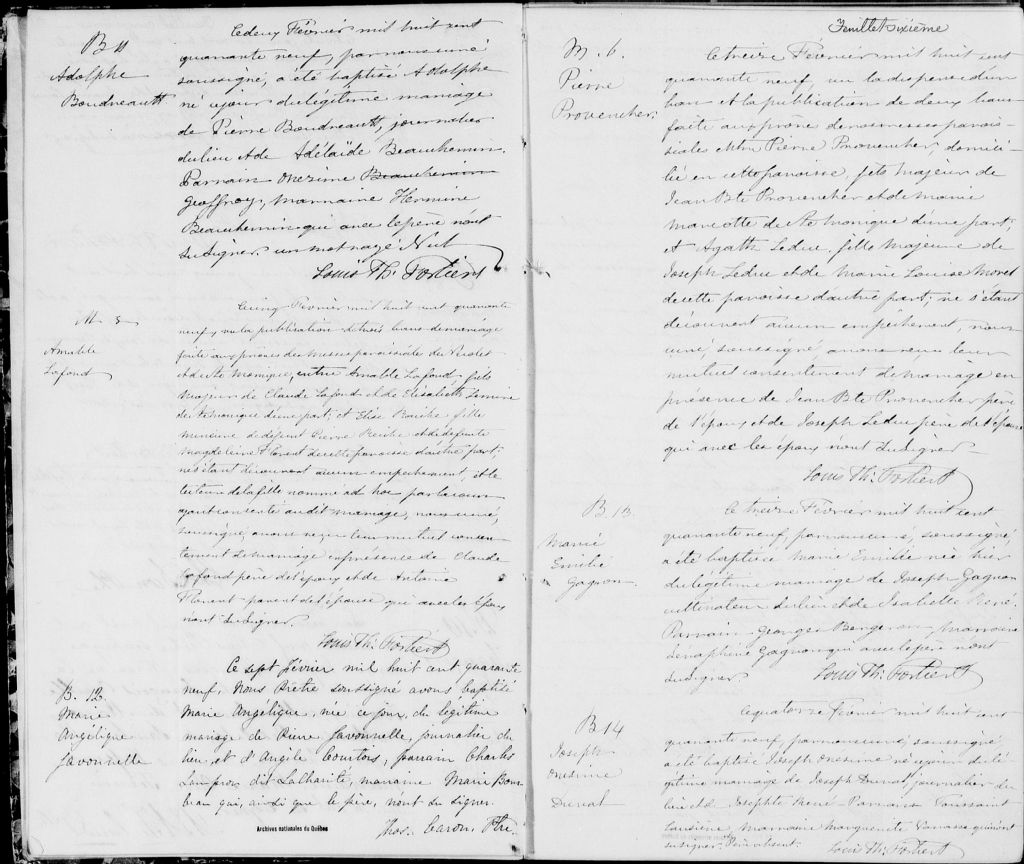 B 11
Adolphe
Boudreault
Ce deux Février mil huit cent
quarante neuf, par nous curé
soussigné, a été baptisé Adolphe
né ce jour du légitime mariage
de Pierre Boudreault, journalier
du lieu et de Adélaïde Beauchemin.
Parrain Onesime Beauchemin
Geoffroy, marraine Hermine
Beauchemin qui avec le père n'ont
su signer. un mot rayé Nul
Louis Th. Fortier
M 5
Amable
Lafond
Ce cinq Février mil huit cent quarante
neuf, vu la publication de trois bans de mariage
faite aux prônes des messes paroissiales de
et de Ste Monique, entre Amable Lafond, fils
majeur de Claude Lafond et de Elisabeth
de Ste Monique d'une part; et Elise fille
mineure de défunt Pierre et de défunte
Magdeleine Florent de cette paroisse d'autre part;
ne s'étant découvert aucun empêchement, et le
tuteur de la fille nommé ad hoc
ayant consenti au dit mariage, nous curé,
soussigné, avons reçu leur mutuel consen-
tement de mariage en présence de Claude
Lafond père de l'époux et de Antoine
Florent parent de l'épouse qui avec les époux
n'ont su signer.
Louis Th. Fortier
B. 12
Marie
Angélique
Lavonnelle
Ce sept février mil huit cent quarante
neuf, Nous Prêtre soussigné avons baptisé
Marie Angélique, née ce jour, du légitime
mariage de Pierre Lavonnelle, journalier du
lieu, et d'Angèle Courtois, parrain Charles
Lampron dit Lacharité, marraine Marie
qui, ainsi que le père, n'ont su signer.
Thos. Caron, Ptre
Archives nationales du Québec
Feuillet Sixième
M. 6
Pierre
Provencher
Ce treize Février mil huit cent
quarante neuf, vu la dispense d'un
ban et la publication de deux bans
faite aux prône de nos messes parois-
siales entre Pierre Provencher, domici-
lié en cette paroisse, fils majeur de
Jean Bte Provencher et de Marie
Marcotte de Ste Monique d'une part;
et Agathe Leduc, fille majeure de
Joseph Leduc et de Marie Louise Morel
de cette paroisse d'autre part; ne s'étant
découvert aucun empêchement, nous
curé, soussigné, avons reçu leur
mutuel consentement de mariage en
présence de Jean Bte Provencher père
de l'époux et de Joseph Leduc père de l'épouse
qui avec les époux n'ont su signer.
Louis Th. Fortier
B 13
Marie
Emilie
Gagnon
Ce treize Février mil huit cent
quarante neuf, par nous curé, soussigné,
a été baptisée Marie Emilie née hier
du légitime mariage de Joseph Gagnon
cultivateur du lieu et de Isabelle René.
Parrain Georges Bergeron, Marraine
Séraphine Gagnon qui avec le père n'ont
su signer.
Louis Th. Fortier
B 14
Joseph
Onesime
Duval
Ce quatorze Février mil huit cent
quarante neuf, par nous curé, soussigné
a été baptisé Joseph Onesime né ce jour du lé-
gitime mariage de Joseph Duval, journalier du
lieu et de Josephte René. Parrain Toussaint
marraine Marguerite qui n'ont
su signer. Père absent.
Louis Th. Fortier